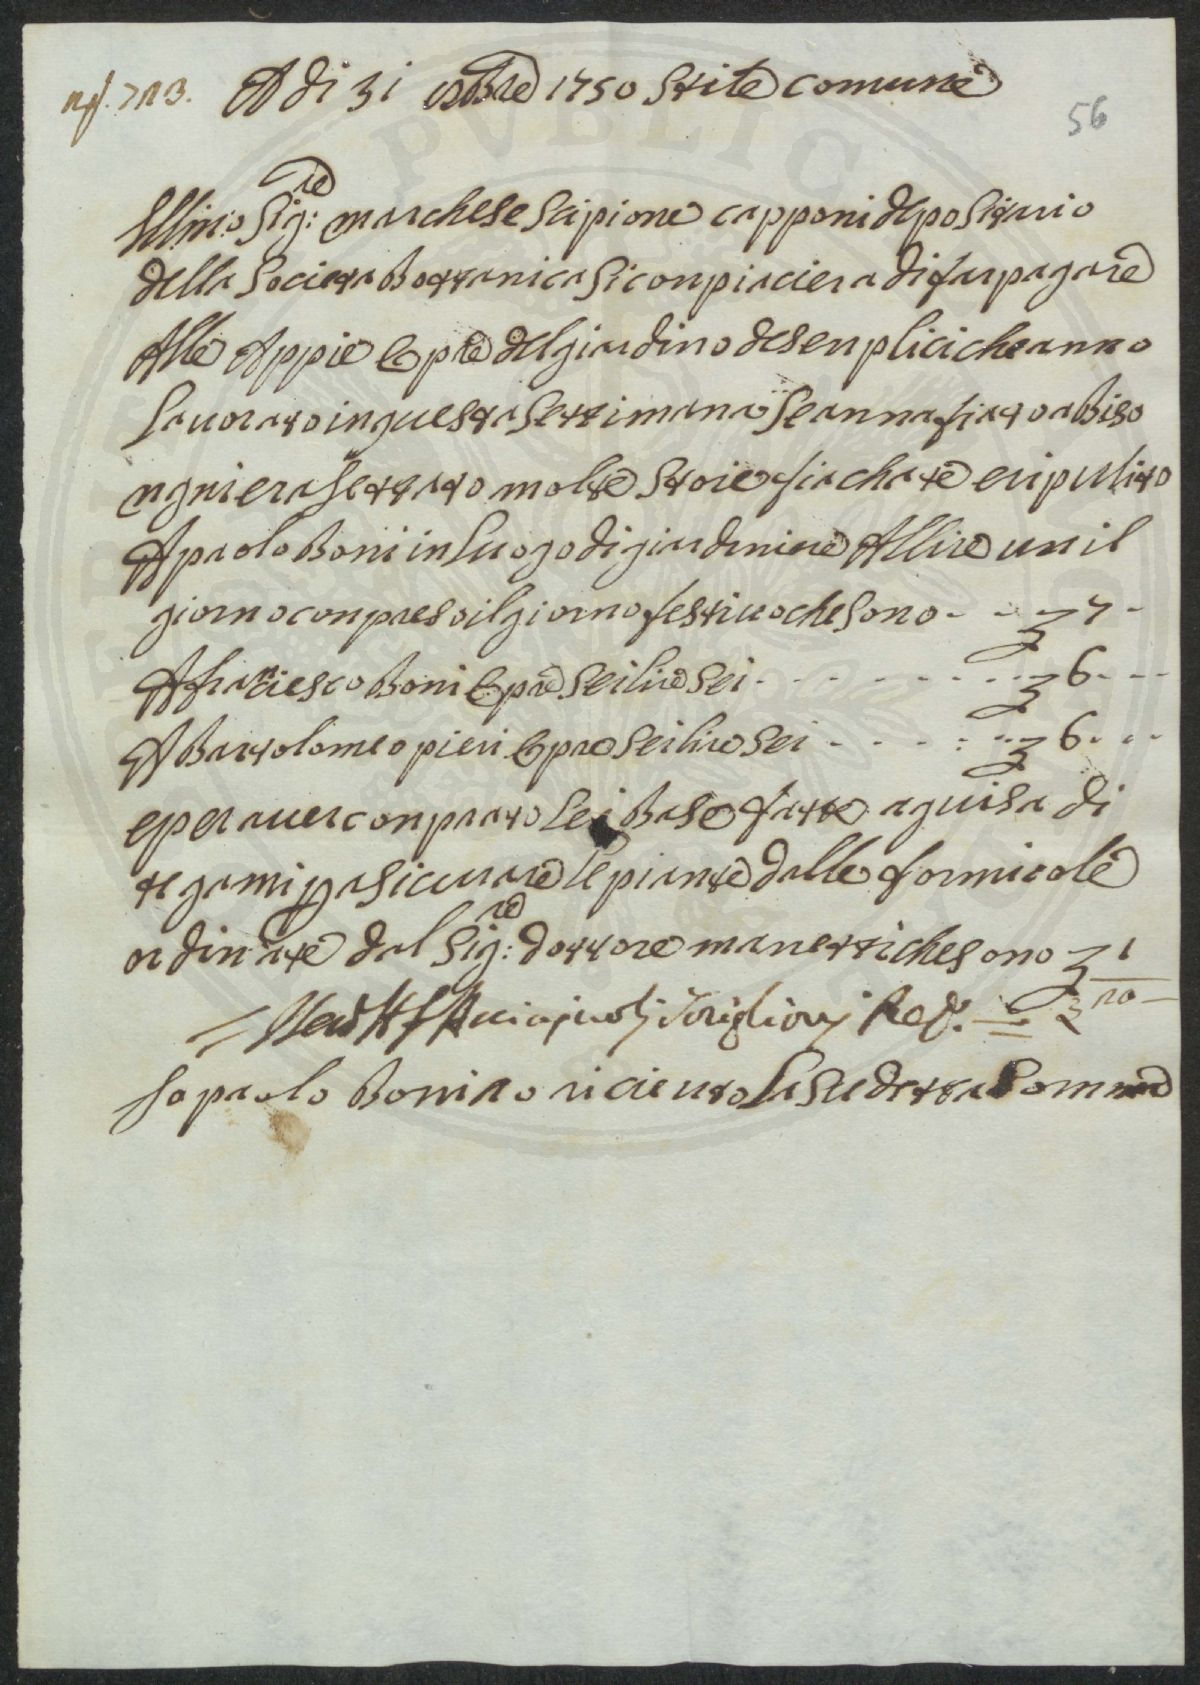 A di 31 ottbre 1750 Stile comune
56
Illmo Sigre: marchese Scipione capponi depositario
della Societa Bottanica Si conpiaciera di far pagare
Alle Appie Opre del giardino de senplici che anno
Lauorato in questa Settimana Se annafiato a Biso
ngniera Settato molte Stoie fiachate e ripulito
A paolo Boni in Luogo di giardiniere A Llire un il
giorno conpreso il giorno festiuo che Sono - - 7 -
A franciesco Boni Opre Sei lire Sei - - - 6 - - -
A Bartolomeo pieri Opre Sei lire Sei - - - 6 - - -
e per auer conprato Sei Base fatte a guisa di
tegami p asicurare le piante dalle formicole
ordinate dal Sigre: dottore manetti che Sono 1
20 -
Io paolo Boni o riceuto La Sudetta Somma